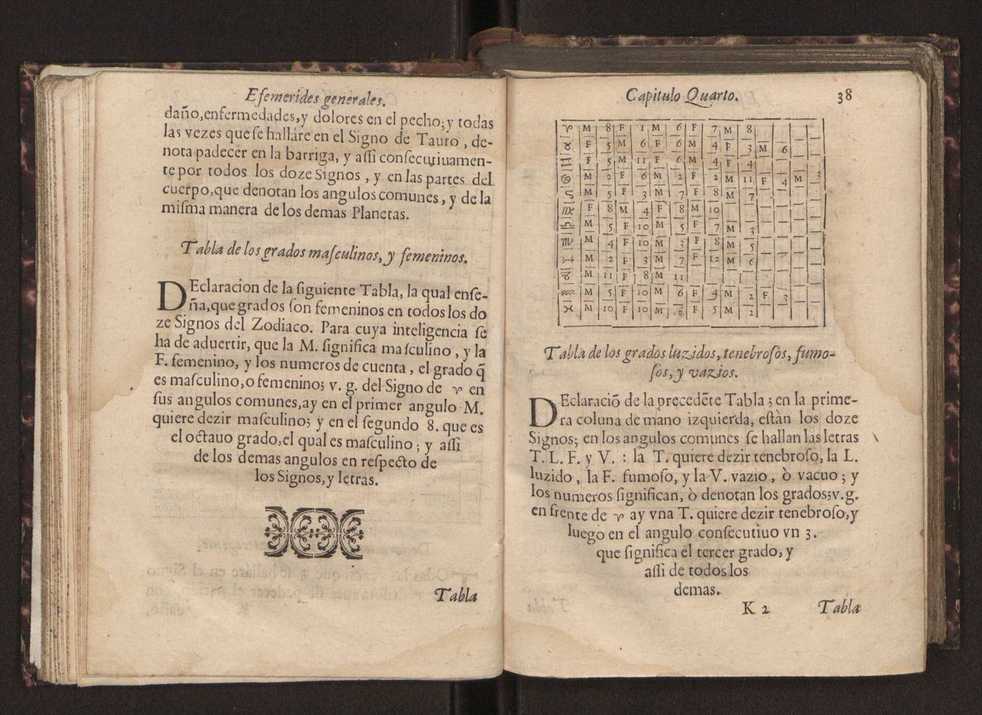 Efemerides generales.
daño,enfermedades,y dolores en el pecho;y todas
las vezes que ſe halláre en el Signo de Tauro , de-
nota padecer en la barriga, y aſſi conſecutiuamen-
te por todos los doze Signos , y en las partes del
cuerpo,que denotan los angulos comunes , y de la
miſma manera de los demas Planetas.
Tabla de los grados maſculinos, y femeninos.
DEclaracion de la ſiguiente Tabla, la qual enſe-
ña,que grados ſon femeninos en todos los do
ze Signos del Zodiaco. Para cuya inteligencia ſe
ha de aduertir, que la M. ſignifica maſculino , y la
F. femenino, y los numeros de cuenta , el grado q̃
es maſculino,o femenino; v. g. del Signo de ♈ en
ſus angulos comunes,ay en el primer angulo M.
quiere dezir maſculino; y en el ſegundo 8. que es
el octauo grado,el qual es maſculino ; y aſſi
de los demas angulos en reſpecto de
los Signos,y letras.
Tabla
Capitulo Quarto. 38
♈ M 8 F 1 M 6 F 7 M 8
♉ F 5 M 6 F 6 M 4 F 3 M 6
♊ F 5 M 11 F 6 M 4 F 4
♋ M 2 F 6 M 2 F 2 M 11 F 4 M 3
♌ M 5 F 3 M 7 F 8 M 7
♍ F 8 M 4 F 8 M 10
♎ M 5 F 10 M 5 F 7 M 3
♏ M 4 F 10 M 3 F 8 M 5
♐ M 2 F 3 M 7 F 12 M 6
♑ M 11 F 8 M 11
♒ M 5 F 10 M 6 F 4 M 2 F 3
♓ M 10 F 10 M 8 F 5 M 2
Tabla de los grados luzidos, tenebroſos, fumo-
ſos, y vazios.
DEclaraciõ de la precedẽte Tabla ; en la prime-
ra coluna de mano izquierda, eſtàn los doze
Signos; en los angulos comunes ſe hallan las letras
T. L. F. y V. : la T. quiere dezir tenebroſo, la L.
luzido , la F. fumoſo, y la V. vazio , ò vacuo ; y
los numeros ſignifican, ò denotan los grados;v.g.
en frente de ♈ ay vna T. quiere dezir tenebroſo,y
luego en el angulo conſecutiuo vn 3.
que ſignifica el tercer grado, y
aſſi de todos los
demas.
K 2 Tabla